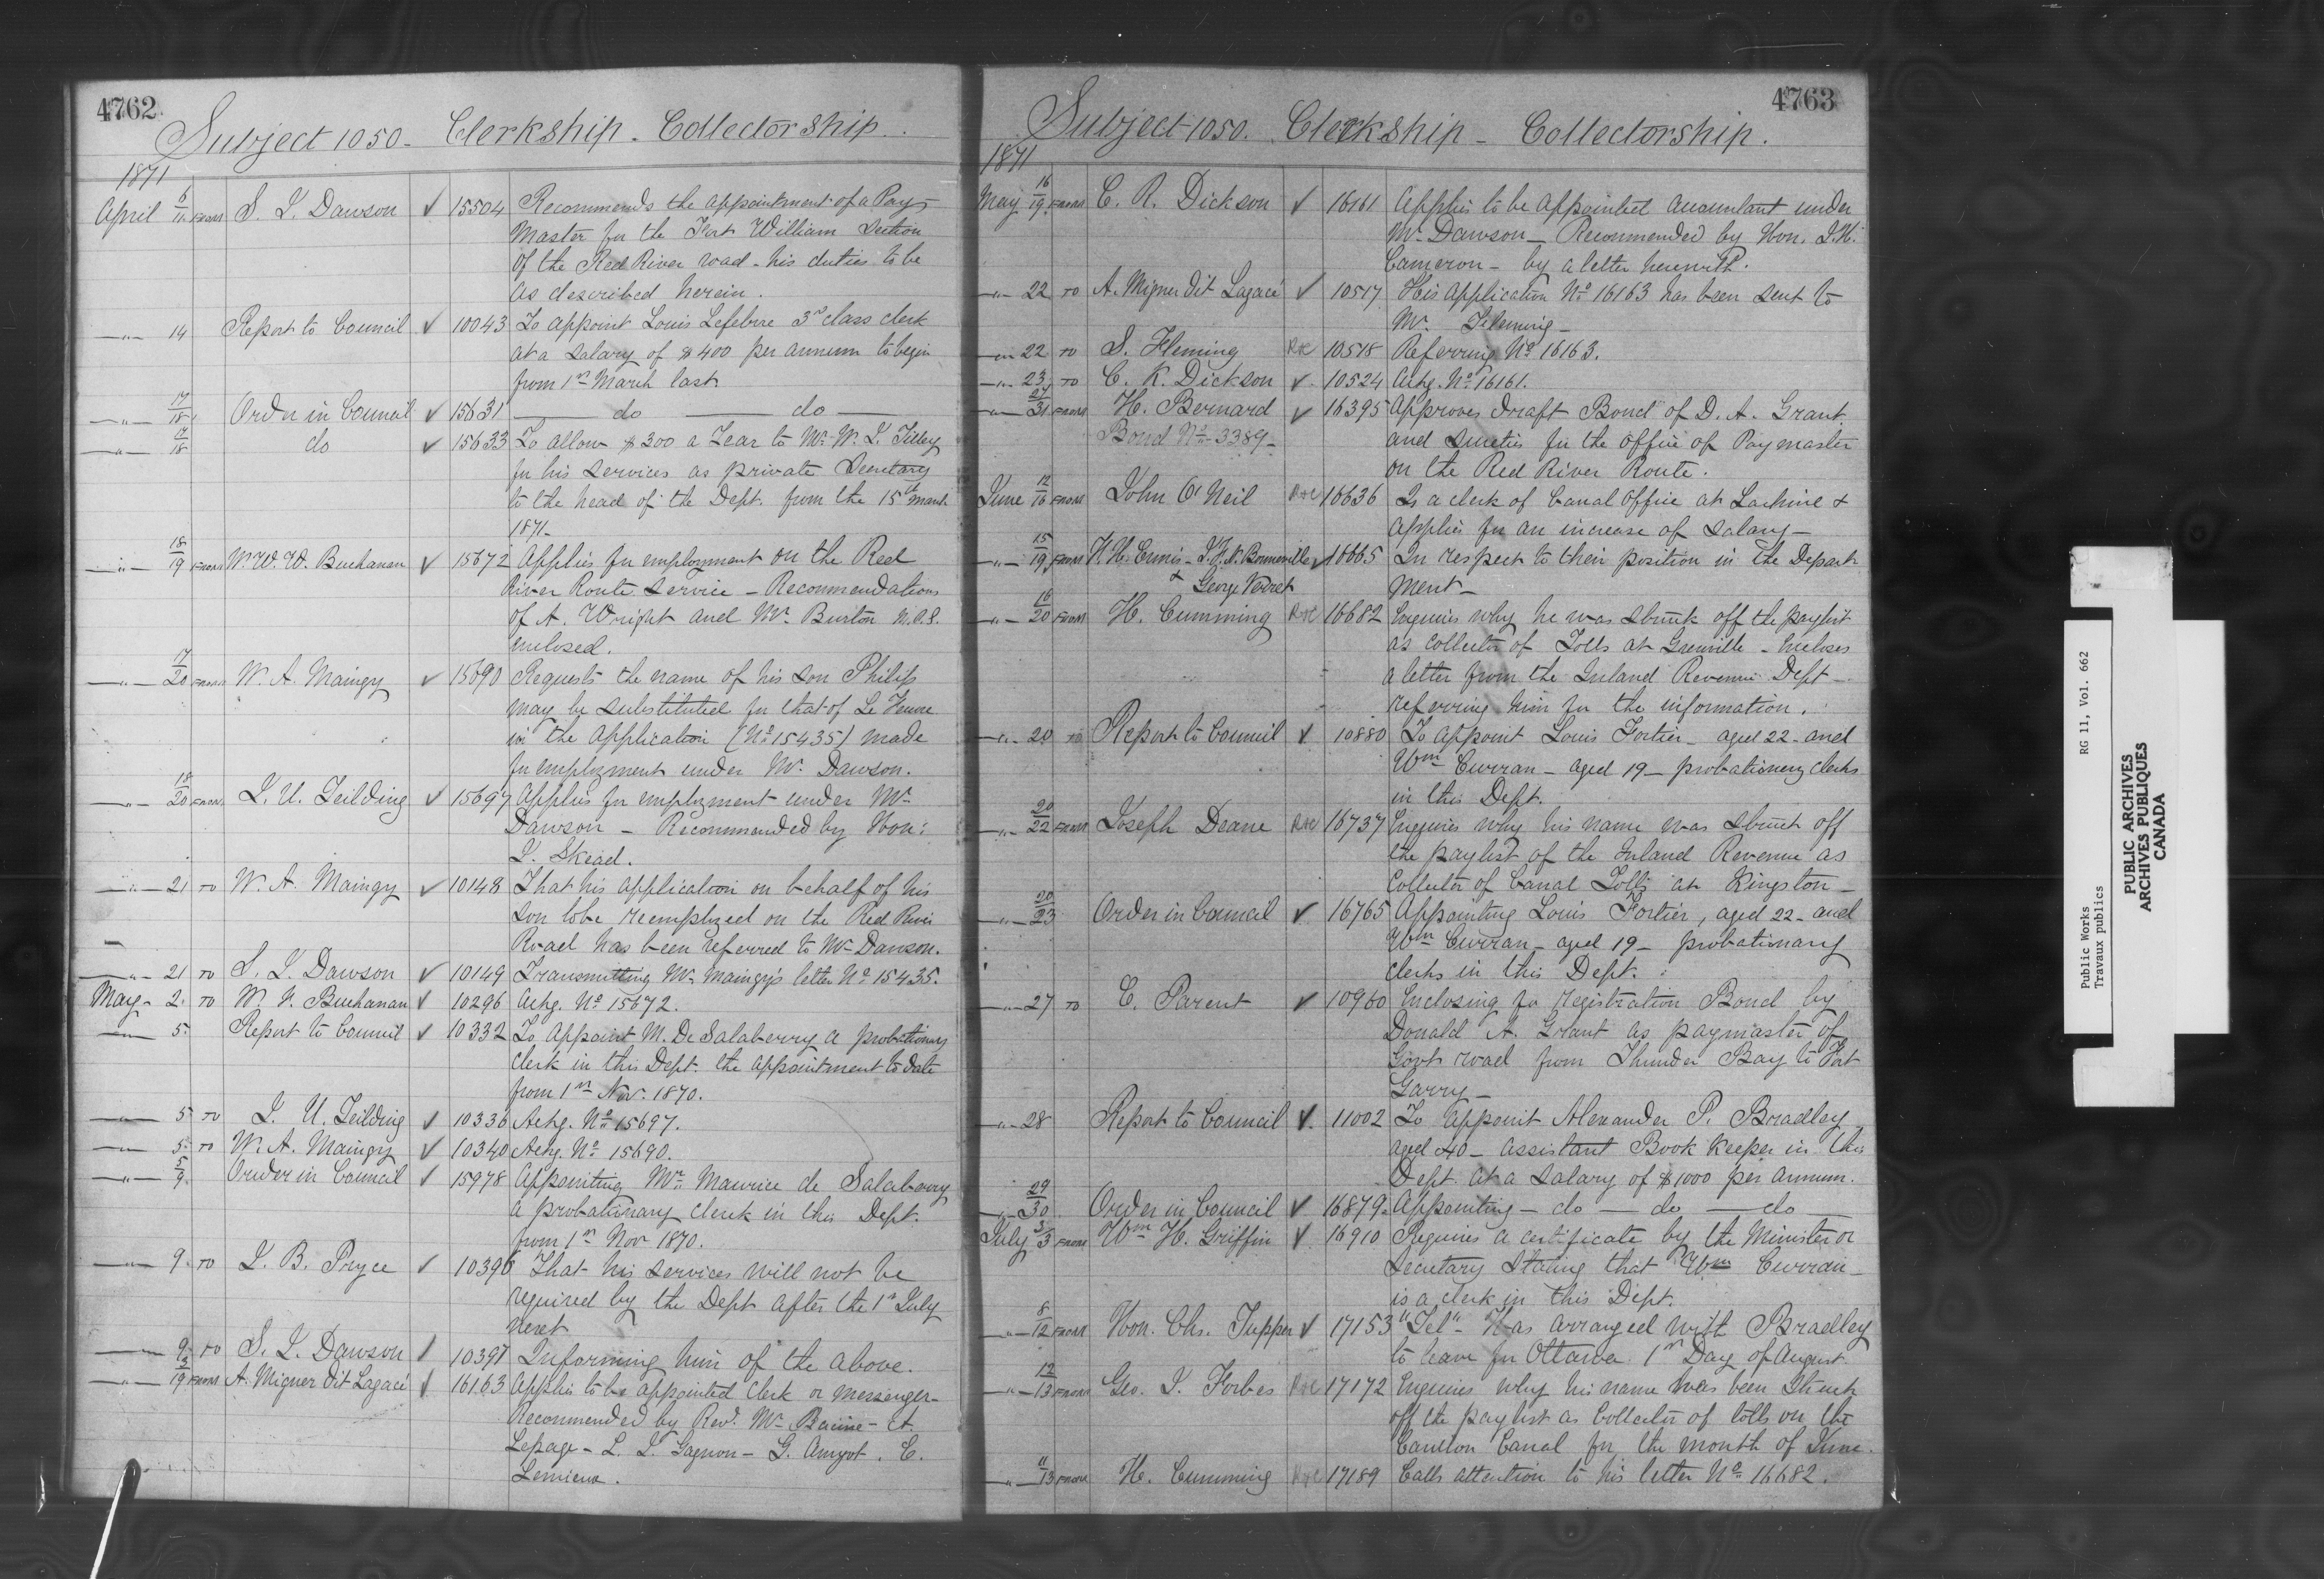 4762
Subject 1050 - Clerkship - Collectorship.
1871
April 6/11 FROM S. J. Dawson ✓ 15504 Recommends the appointment of a Pay
Master for the Fort William Section
of the Red River road - his duties to be
as described herein.
" 14 Report to Council ✓ 10043 To appoint Louis Lefebvre 3rd class clerk
at a salary of $400 per annum to begin
from 1st March last
" 17/18 Order in Council ✓ 15631 — do — do —
" 17/18 do ✓ 15633 To allow $300 a Year to Mr. W. L. Tilley
for his services as private Secretary
to the head of the Dept. from the 15th March
1871 -
" 18/19 FROM W. W. Buchanan ✓ 15672 Applies for employment on the Red
River Route Service - Recommendations
of A. Wright and Mr. Burton M.P.P.
enclosed.
" 17/20 FROM W. A. Maingy ✓ 15690 Requests the name of his son Philip
may be substituted for that of Le Feuvre
in the application (No. 15435) made
for employment under Mr. Dawson.
" 18/20 FROM J. U. Teilding ✓ 15697 Applies for employment under Mr.
Dawson - Recommended by Hon:
J. Skead.
" 21 TO W. A. Maingy ✓ 10148 That his application on behalf of his
son to be reemployed on the Red River
Road has been referred to Mr. Dawson.
" 21 TO S. J. Dawson ✓ 10149 Transmitting Mr. Maingy's letter No. 15435.
May 2. TO W. W. Buchanan ✓ 10296 Ackg. No. 15672.
" 5. Report to Council ✓ 10332 To Appoint M. De Salaberry a probationary
clerk in this Dept. the appointment to date
from 1st Nov. 1870.
" 5 TO J. U. Teilding ✓ 10336 Ackg. No. 15697.
" 5. TO W. A. Maingy ✓ 10340 Ackg. No. 15690.
" 5/9 Order in Council ✓ 15978 Appointing Mr. Maurice de Salaberry
a probationary clerk in this Dept.
from 1st Nov 1870.
" 9. TO J. B. Pryce ✓ 10396 That his services will not be
required by the Dept after the 1st July
next
" 9. TO S. J. Dawson ✓ 10397 Informing him of the above.
" 19 FROM A. Migner dit Lagacé ✓ 16163 Applies to be appointed clerk or messenger -
Recommended by Revd. Mr. - A.
Lepage - L. J. Gagnon - G. Amyot. C.
Lemieux.
4763
Subject 1050. Clerkship - Collectorship.
1871
May 16/19 FROM C. R. Dickson ✓ 16161 Applies to be appointed accountant under
Mr. Dawson - Recommended by Hon. J. H.
Cameron - by a letter herewith.
" 22 TO A. Migner dit Lagacé ✓ 10517 His application No. 16163 has been sent to
Mr. Fleming -
" 22 TO S. Fleming R&C 10518 Referring No. 16163.
" 23 TO C. R. Dickson ✓ 10524 Ackg. No. 16161.
" 27/31 FROM H. Bernard ✓ 16395 Approves draft Bond of D. A. Grant
Bond No. 3389 - and sureties for the office of Paymaster
on the Red River Route.
June 12/16 FROM John O'Neil R&C 16636 Is a clerk of Canal Office at Lachine &
applies for an increase of salary -
" 15/19 FROM F. H. Ennis - J. F. N. Bonneville ✓ 16665 In respect to their position in the Depart
& George Verret ment -
" 16/20 FROM H. Cumming R&C 16682 Enquires why he was struck off the paylist
as collector of Tolls at Grenville - Incloses
a letter from the Inland Revenue Dept -
referring him for the information.
" 20 TO Report to Council ✓ 10880 To appoint Louis Fortier - aged 22 - and
Wm Curran - aged 19 - probationary clerks
in this Dept.
" 20/22 FROM Joseph Deane R&C 16737 Enquires why his name was struck off
the paylist of the Inland Revenue as
Collector of Canal Tolls at Kingston -
" 20/23 Order in Council ✓ 16765 Appointing Louis Fortier, aged 22 - and
Wm Curran - aged 19 - probationary
clerks in this Dept.
" 27 TO E. Parent ✓ 10960 Enclosing for registration Bond by
Donald A. Grant as paymaster of
Govt road from Thunder Bay to Fort
Garry -
" 28 Report to Council ✓ 11002 To appoint Alexander P. Bradley
aged 40 - assistant Book Keeper in this
Dept. at a salary of $1000 per annum.
" 29/30 Order in Council ✓ 16879 Appointing - do - do - do -
July 3/3 FROM Wm H. Griffin ✓ 16910 Requires a certificate by the Minister or
Secretary stating that Wm Curran -
is a clerk in this Dept.
" 8/12 FROM Hon. Chs. Tupper ✓ 17153 "Tel" - Has arranged with Bradley
to leave for Ottawa 1st Day of August.
" 12/13 FROM Geo. J. Forbes R&C 17172 Enquires why his name has been struck
off the paylist as Collector of tolls on the
Carillon Canal for the month of June.
" 11/13 FROM H. Cumming R&C 17189 Calls attention to his letter No. 16682.
Public Works RG 11, Vol. 662
Travaux publics
PUBLIC ARCHIVES
ARCHIVES PUBLIQUES
CANADA